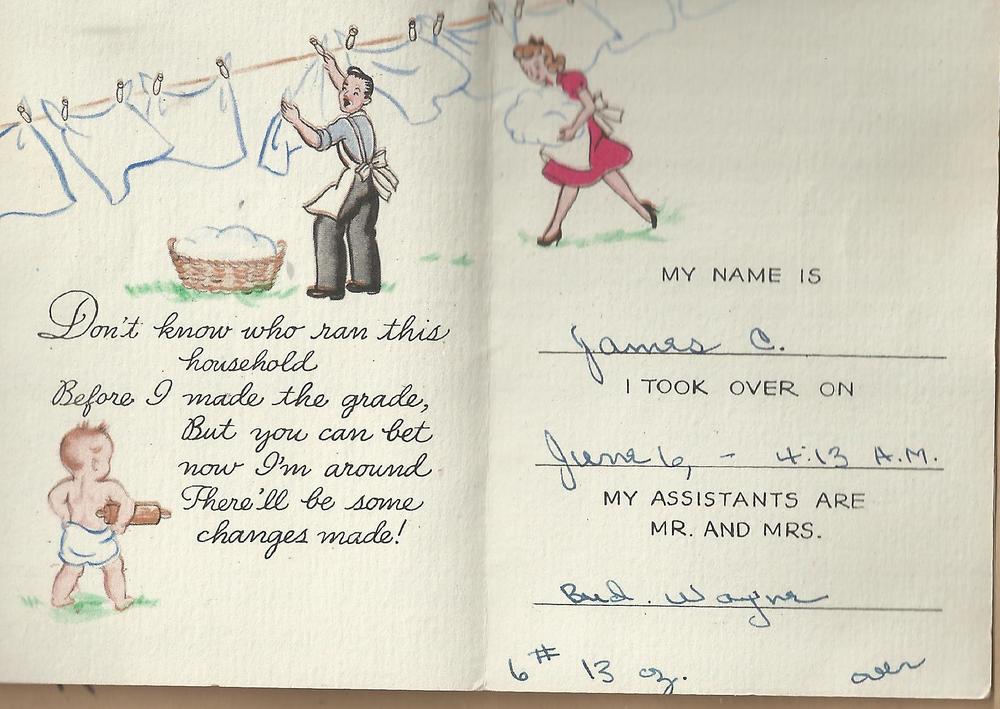 Don't know who ran this
household
Before I made the grade,
But you can bet
now I'm around
There'll be some
changes made!
MY NAME IS
James C.
I TOOK OVER ON
June 6, - 4:13 A.M.
MY ASSISTANTS ARE
MR. AND MRS.
Bud. Wayne
6# 13 oz.
over